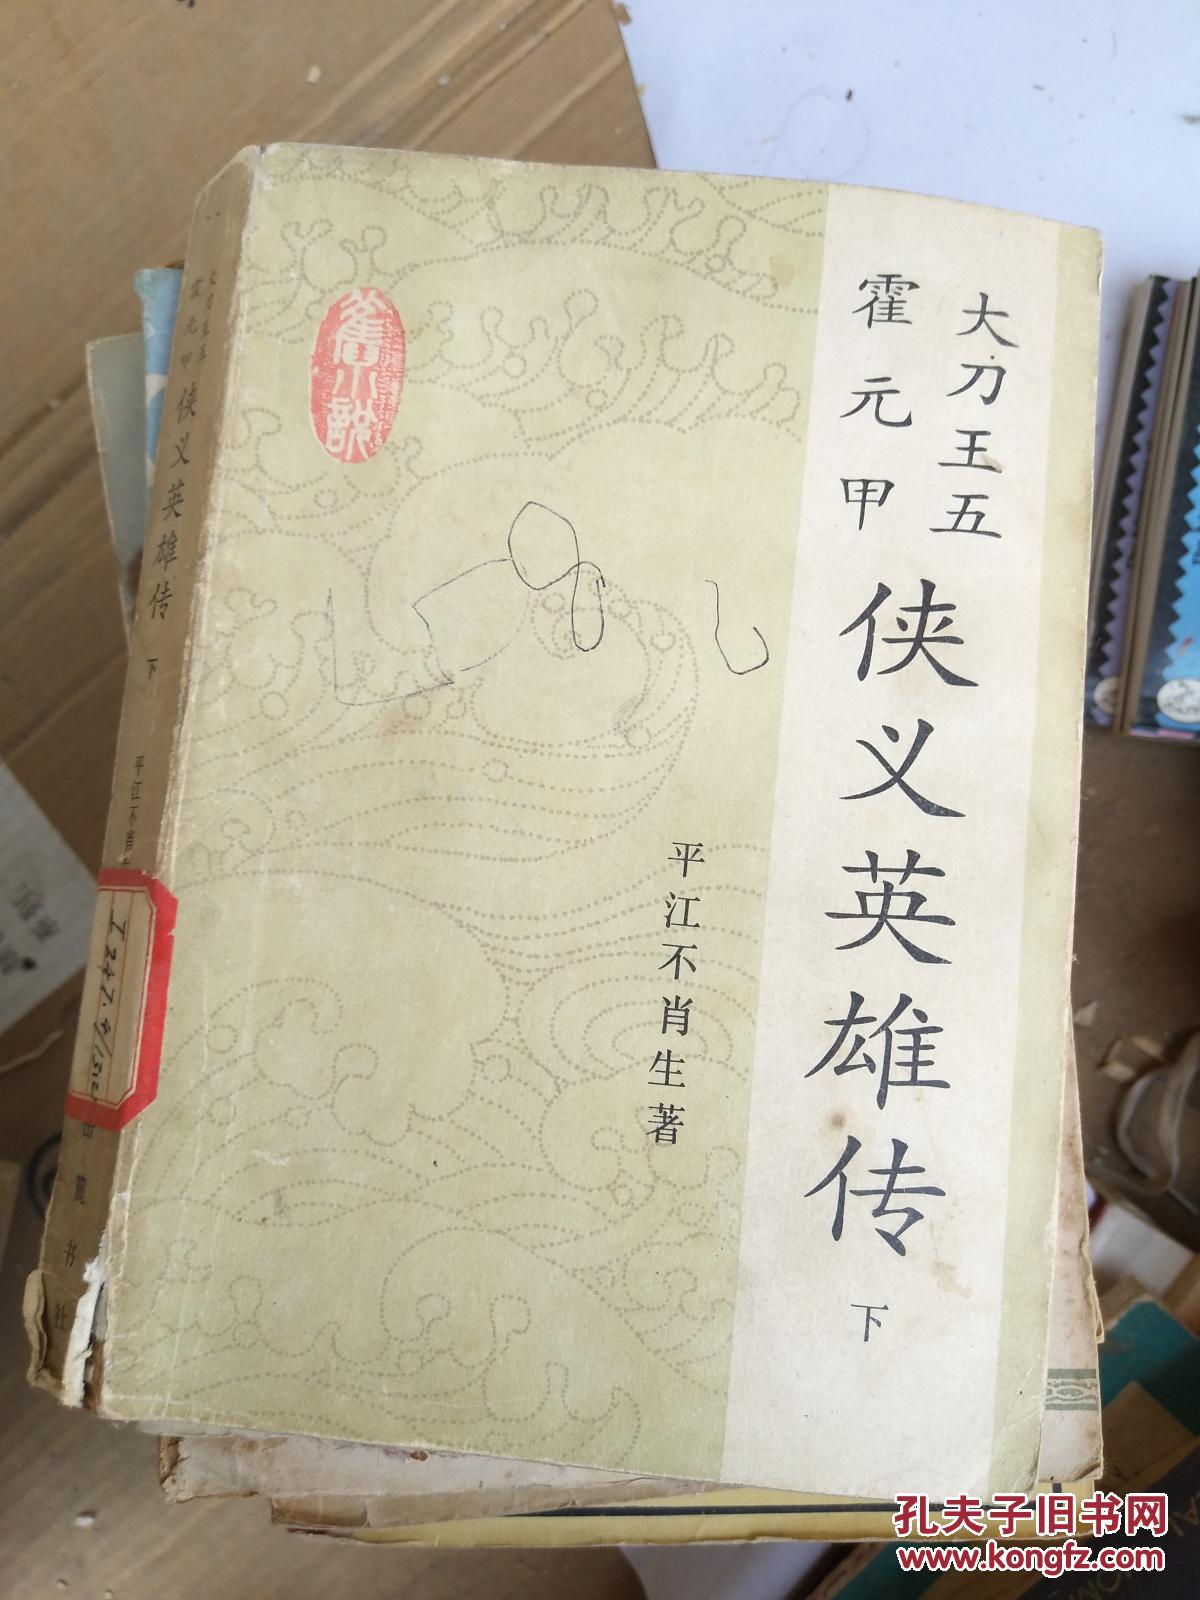 大刀王五
霍元甲
侠义英雄传
下
平江不肖生著
舊小說
大刀王五
霍元甲
侠义英雄传
下
平江不肖
I247.4/1312
岳麓书社
孔夫子旧书网
www.kongfz.com